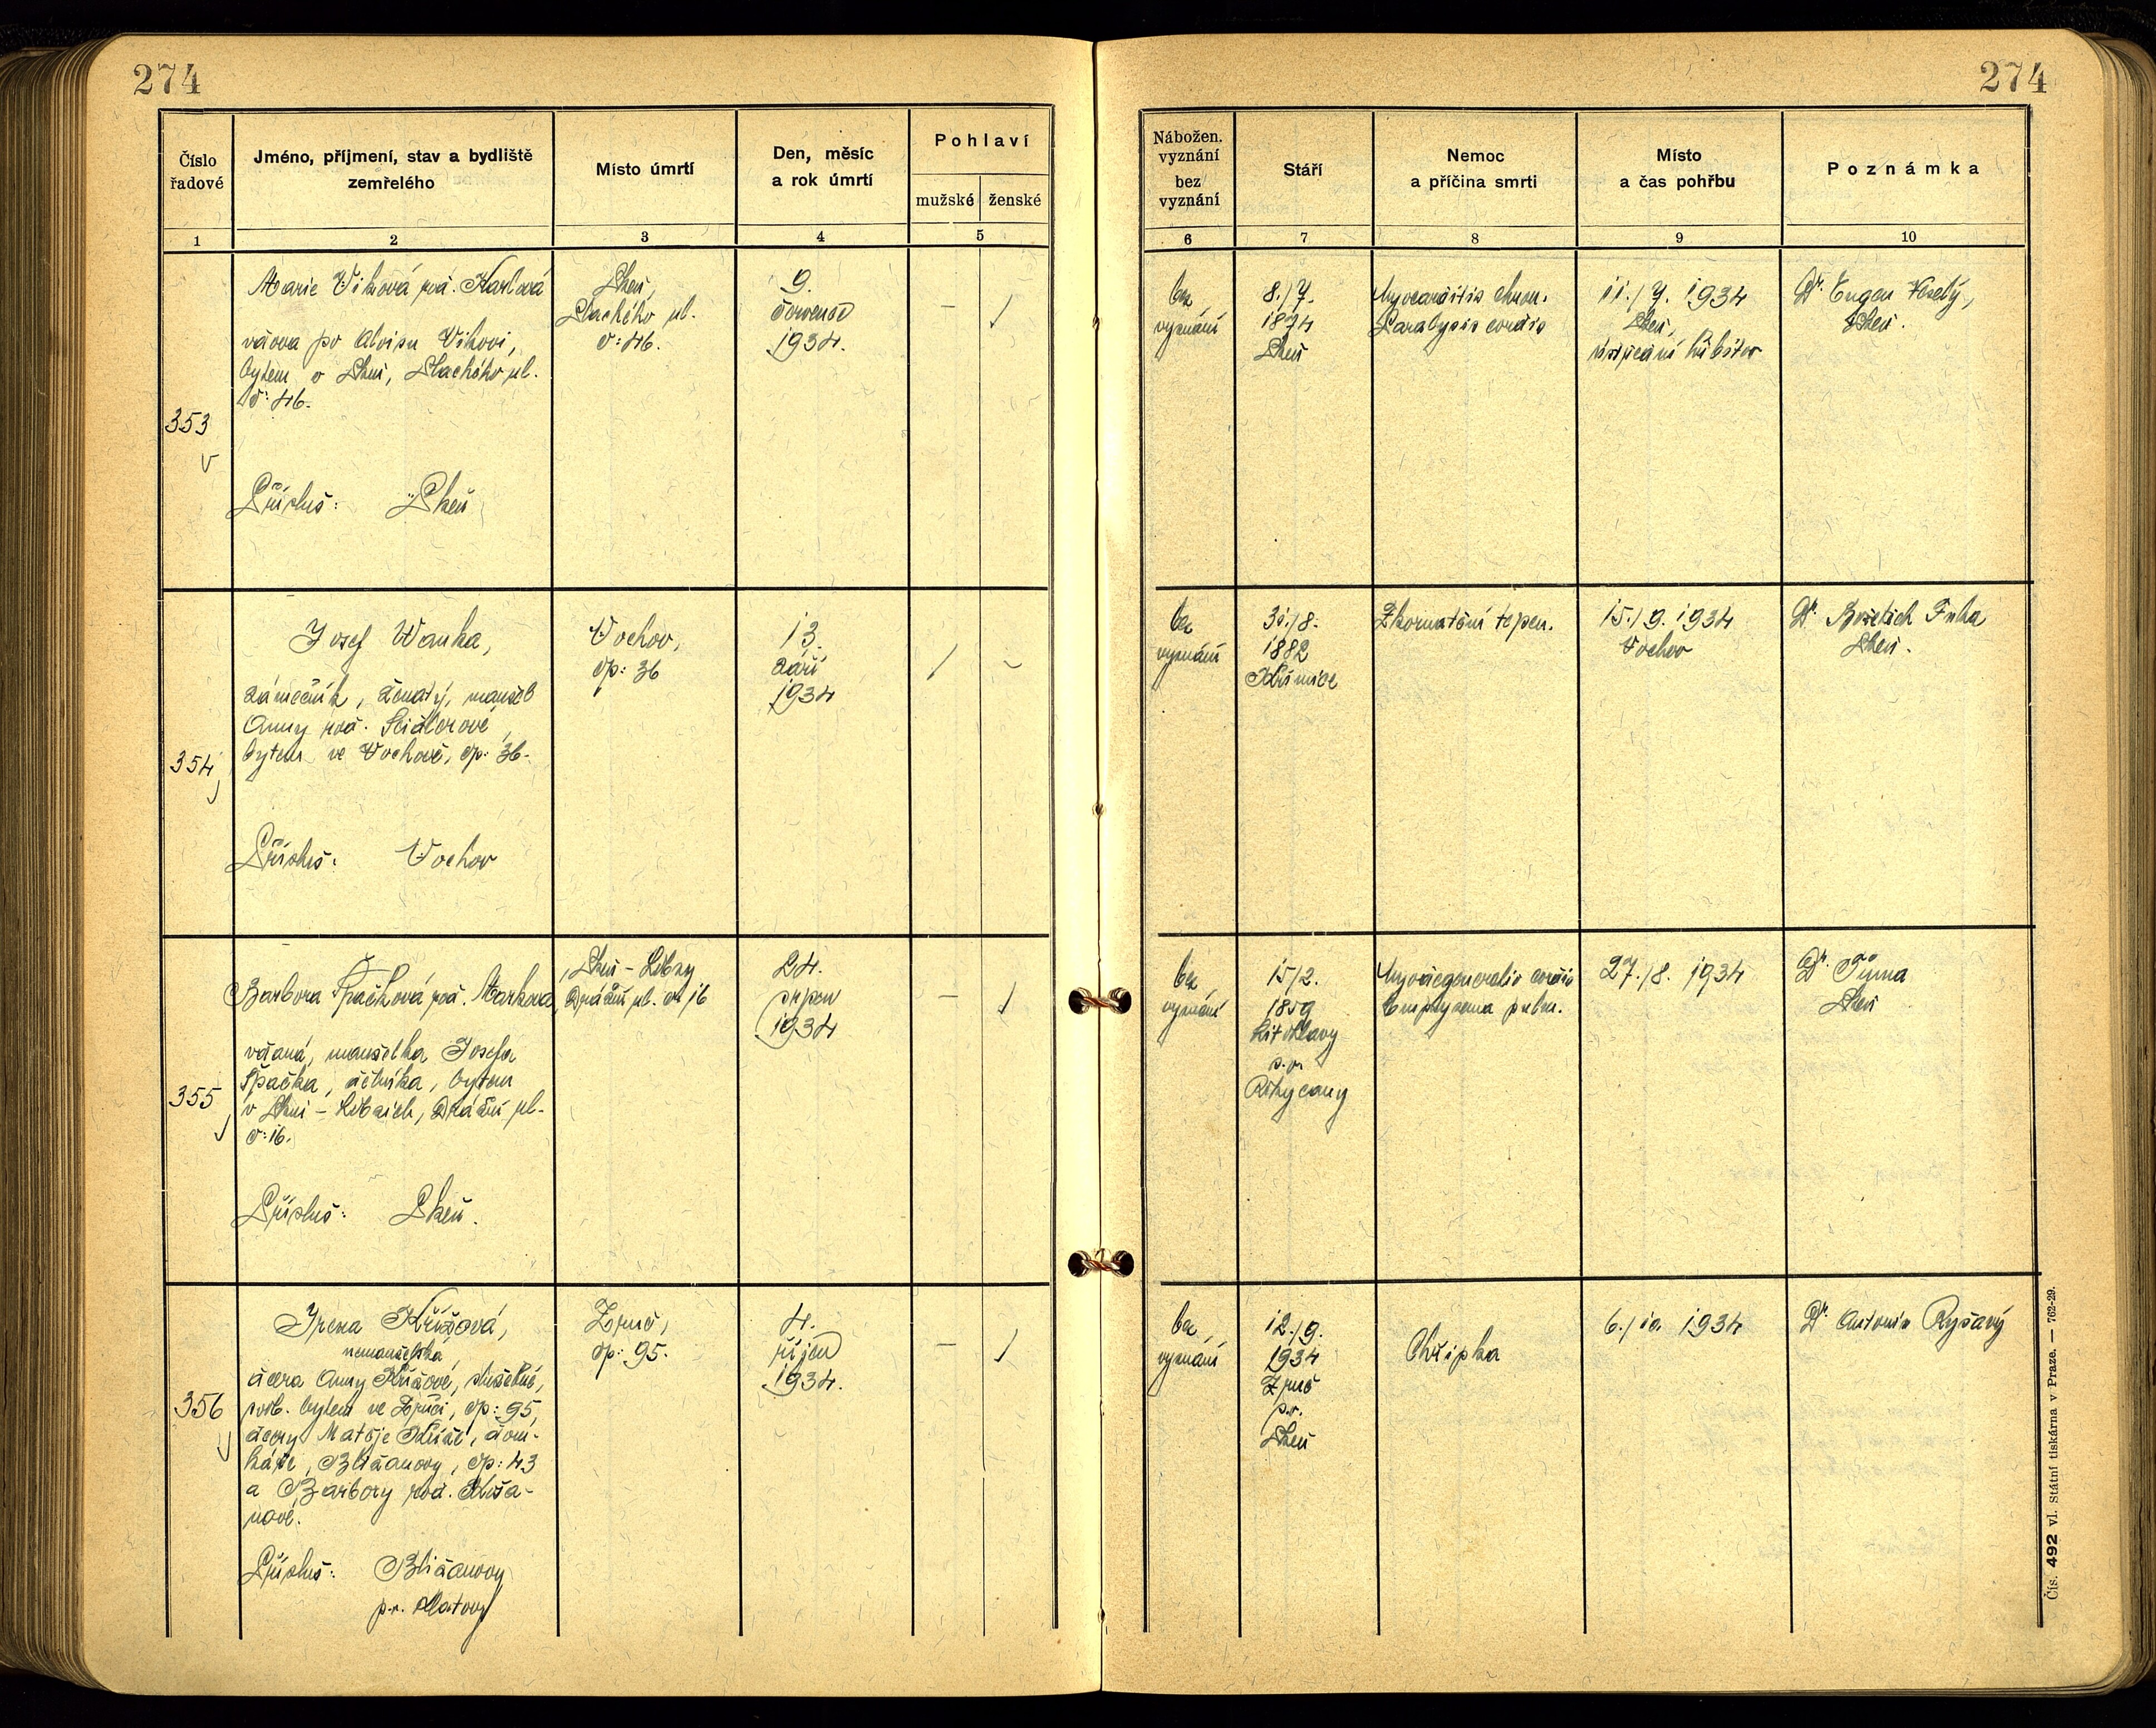 274
274
Číslo
řadové
Jméno, příjmení, stav a bydliště
zemřelého
Místo úmrtí
Den, měsíc
a rok úmrtí
Pohlaví
mužské
ženské
1
2
3
4
5
Nábožen.
vyznání
bez
vyznání
Stáří
Nemoc
a příčina smrti
Místo
a čas pohřbu
Poznámka
6
7
8
9
10
353
Marie Vihová roz. Karlová
vdova po Aloisu Vihovi,
bytem v Plzni, Plachého ul.
č: 46.
Přísluš: Plzeň
Plzeň,
Plachého ul.
č: 46.
9.
červenec
1934.
bez
vyznání
8./7.
1874
Plzeň
Myocarditis chron.
Paralysis cordis
11./7. 1934
Plzeň,
ústřední hřbitov
Dr. Eugen Veselý,
Plzeň.
354
Josef Wanka,
zámečník, ženatý, manžel
Anny roz. Seidlerové,
bytem ve Vochově, čp: 36.
Přísluš: Vochov
Vochov,
čp: 36
13.
září
1934
bez
vyznání
31./8.
1882
Křimice
Zkornatění tepen.
15./9. 1934
Vochov
Dr. Bořetich Fuha
Plzeň.
355
Barbora Špačková roz. Marková
vdaná, manželka Josefa
Špačka, dělníka, bytem
v Plzni - Lobzích, Dráční ul.
č: 16.
Přísluš: Plzeň.
Plzeň - Lobzy
ul. č. 16
24.
srpen
1934
bez
vyznání
15/2.
1859
Litohlavy
p. r.
Rokycany
Myodegeneratio cordis
Emphysema pulm.
27./8. 1934
Dr. Tůma
Plzeň
356
Irena Křížová,
nemanželská
dcera Anny Křížové, služebné,
svob. bytem ve Zruči, čp: 95,
dcery Matěje Kříže, dom-
káře, Bližanovy, čp: 43
a Barbory roz.
nové.
Přísluš: Bližanovy
p. r. Klatovy
Zruč,
čp: 95.
4.
říjen
1934.
bez
vyznání
12./9.
1934
Zruč
p. r.
Plzeň
Chřipka
6./10. 1934
Dr. Antonín Ryšavý
Čís. 492 vl. Státní tiskárna v Praze. — 762-29.